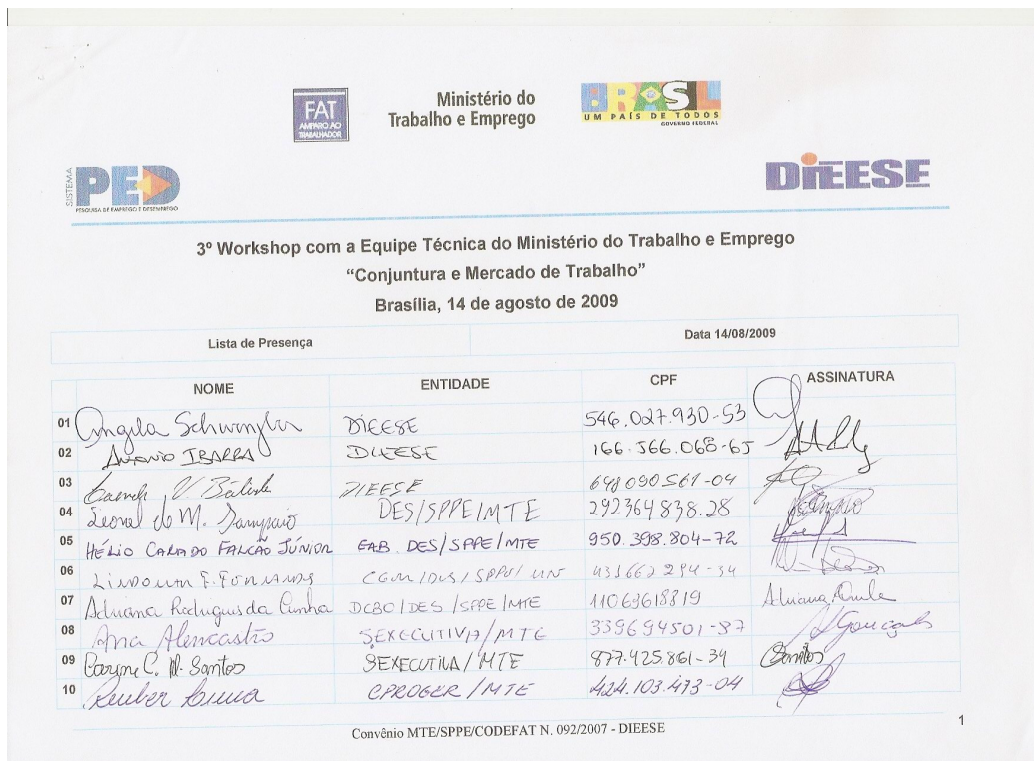 FAT
AMPARO AO
TRABALHADOR
Ministério do
Trabalho e Emprego
BRASIL
UM PAÍS DE TODOS
GOVERNO FEDERAL
SISTEMA
PED
PESQUISA DE EMPREGO E DESEMPREGO
DIEESE
3º Workshop com a Equipe Técnica do Ministério do Trabalho e Emprego
“Conjuntura e Mercado de Trabalho”
Brasília, 14 de agosto de 2009
Lista de Presença Data 14/08/2009
NOME ENTIDADE CPF ASSINATURA
01 Angela DIEESE 546.027.930-53
02 Antonio IBARRA DIEESE 166.566.068-65
03 V. DIEESE 648090561-04
04 Leonel do M. Sampaio DES/SPPE/MTE 292364838.28
05 HÉLIO FALCÃO JÚNIOR DES/SPPE/MTE 950.398.804-72
06 F.
07 Adriana Rodrigues da Cunha DCBO/DES/SPPE/MTE 11069618819 Adriana
08 Ana Alencastro S.EXECUTIVA/MTE 339694501-87
09 C. Santos S.EXECUTIVA/MTE 877.425.861-34 Santos
10 CPROGER/MTE 424.103.473-04
Convênio MTE/SPPE/CODEFAT N. 092/2007 - DIEESE
1